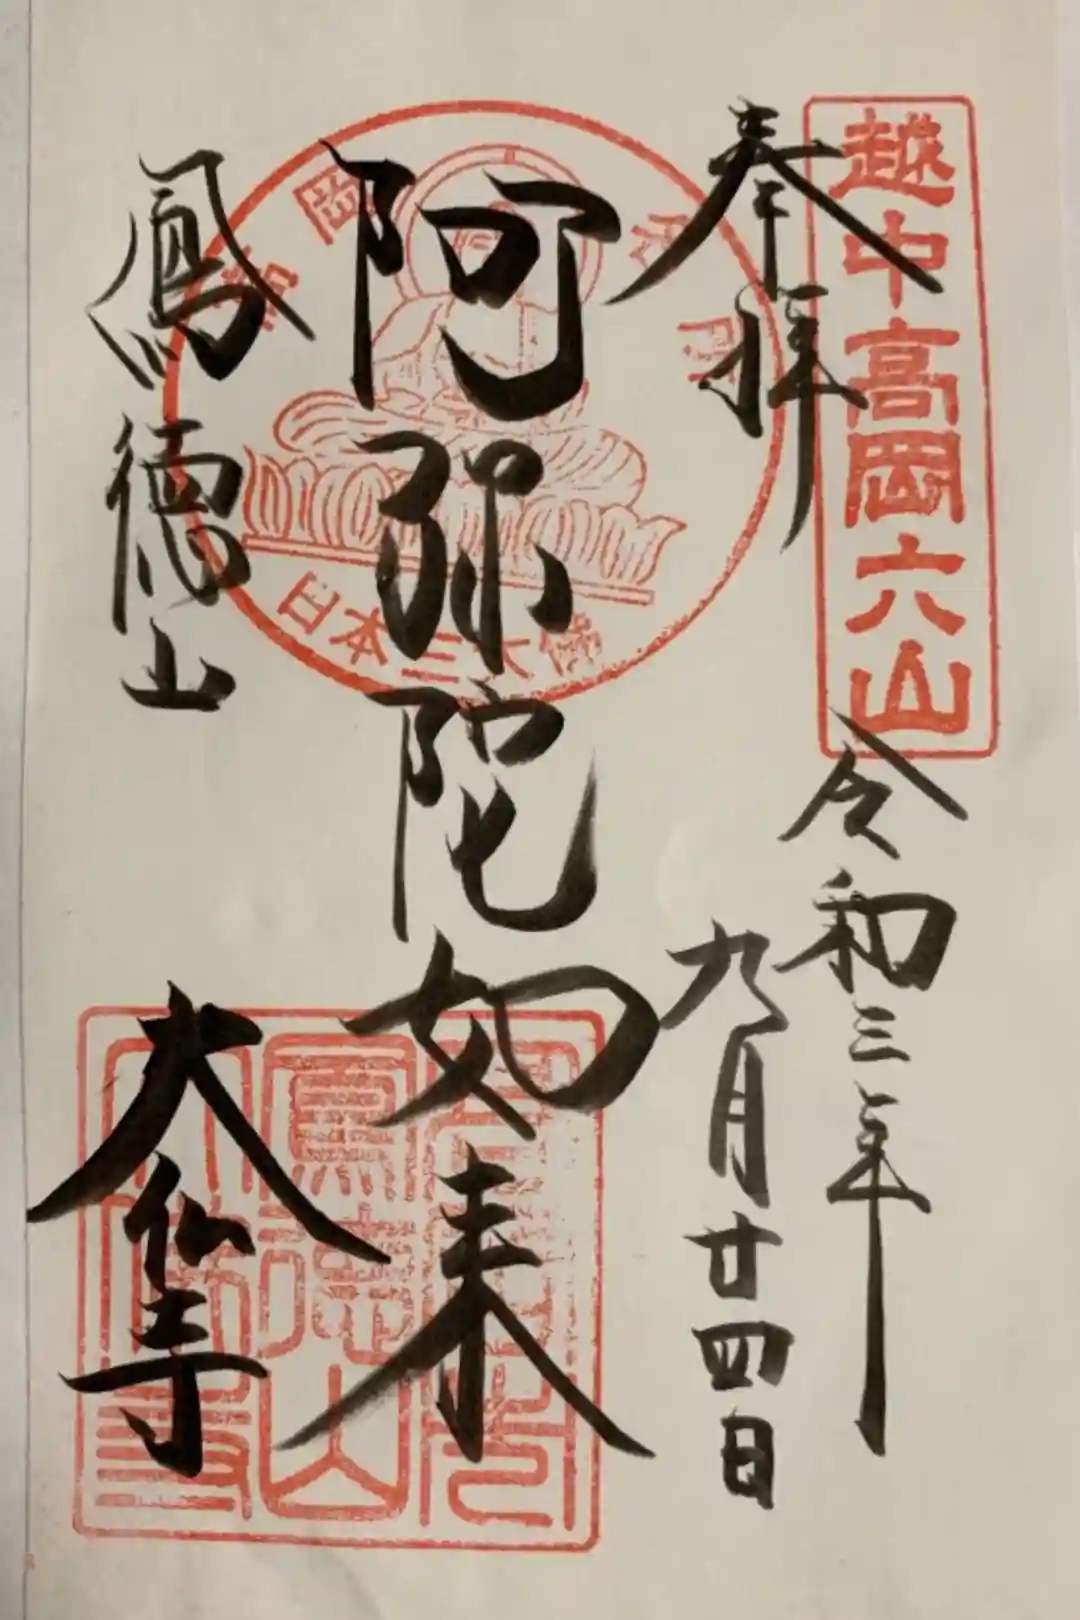 越中高岡六山
奉拝
令和三年
九月廿四日
阿弥陀如来
日本三大佛
鳳徳山
大仏寺